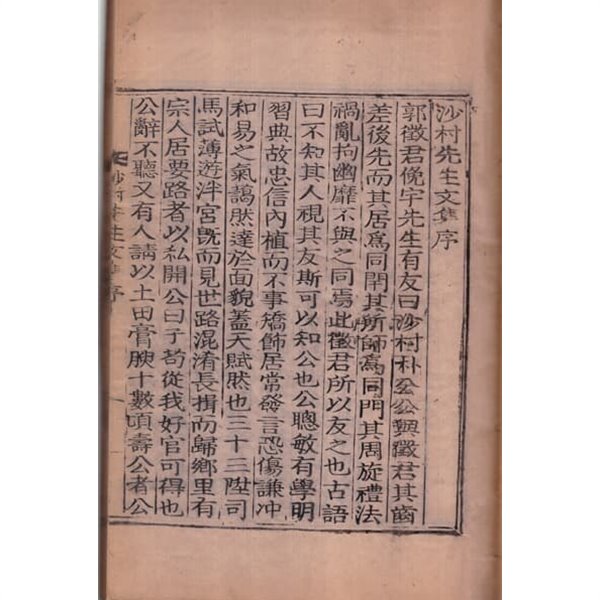 沙村先生文集序
郭徵君俛宇先生有友曰沙村朴公公與徵君其齒
差後先而其居爲同閈其所師爲同門其周旋禮法
禍亂拘幽靡不與之同焉此徵君所以友之也古語
曰不知其人視其友斯可以知公也公聰敏有學明
習典故忠信內植而不事矯飾居常發言恐傷謙冲
和易之氣藹然達於面貌蓋天賦然也三十三陞司
馬試薄遊泮宮旣而見世路混淆長揖而歸鄉里有
宗人居要路者以私開公曰子苟從我好官可得也
公辭不聽又有人請以土田膏腴十數頃壽公者公
沙村先生文集序